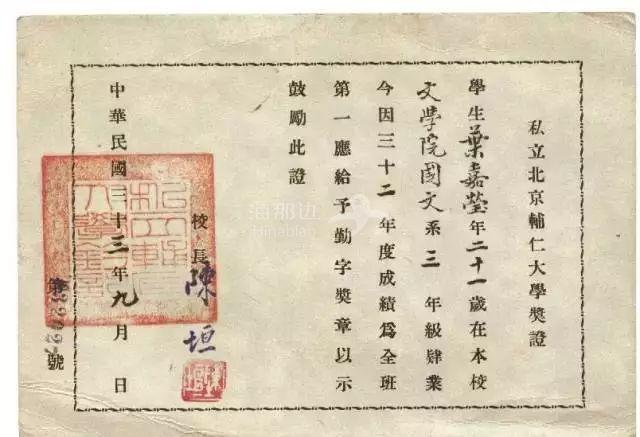 私立北京輔仁大學獎證
學生葉嘉瑩年二十一歲在本校
文學院國文系三年級肄業
今因三十二年度成績爲全班
第一應給予勤字獎章以示
鼓勵此證
校長陳垣
中華民國三十三年九月日
第號
海那边
Hinabian